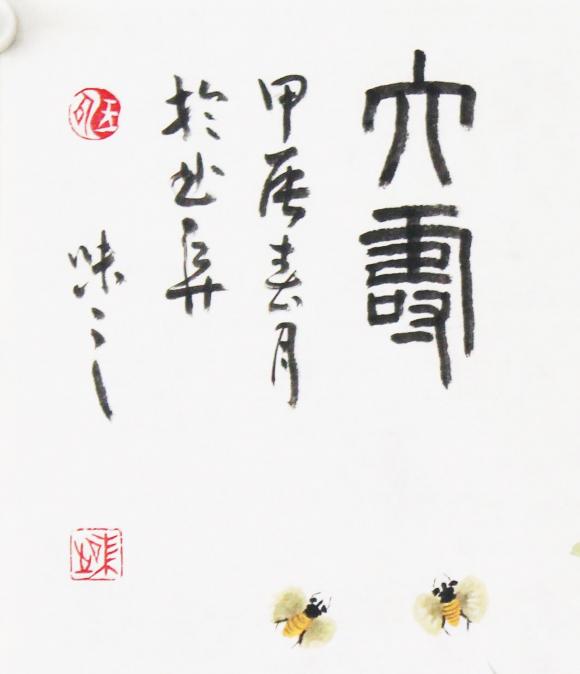 大壽
甲辰春月
於
味之